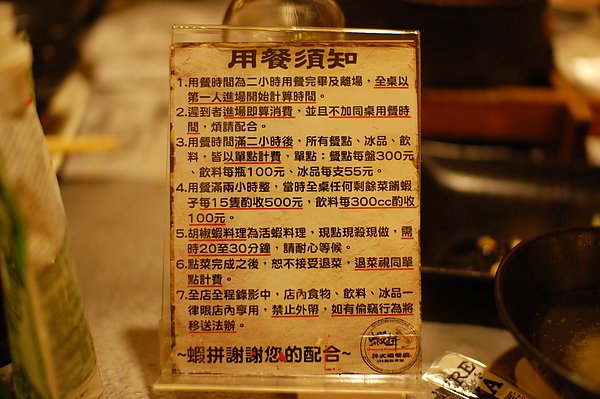 用餐須知
1.用餐時間為二小時用餐完畢及離場，全桌以
第一人進場開始計算時間。
2.遲到者進場即算消費，並且不加同桌用餐時
間，煩請配合。
3.用餐時間滿二小時後，所有餐點、冰品、飲
料，皆以單點計費，單點：餐點每盤300元
、飲料每瓶100元、冰品每支55元。
4.用餐滿兩小時整，當時全桌任何剩餘菜餚蝦
子每15隻酌收500元，飲料每300cc酌收
100元。
5.胡椒蝦料理為活蝦料理，現點現殺現做，需
時20至30分鐘，請耐心等候。
6.點菜完成之後，恕不接受退菜，退菜視同單
點計費。
7.全店全程錄影中，店內食物、飲料、冰品一
律限店內享用，禁止外帶，如有偷竊行為將
移送法辦。
~蝦拼謝謝您的配合~
蝦拼